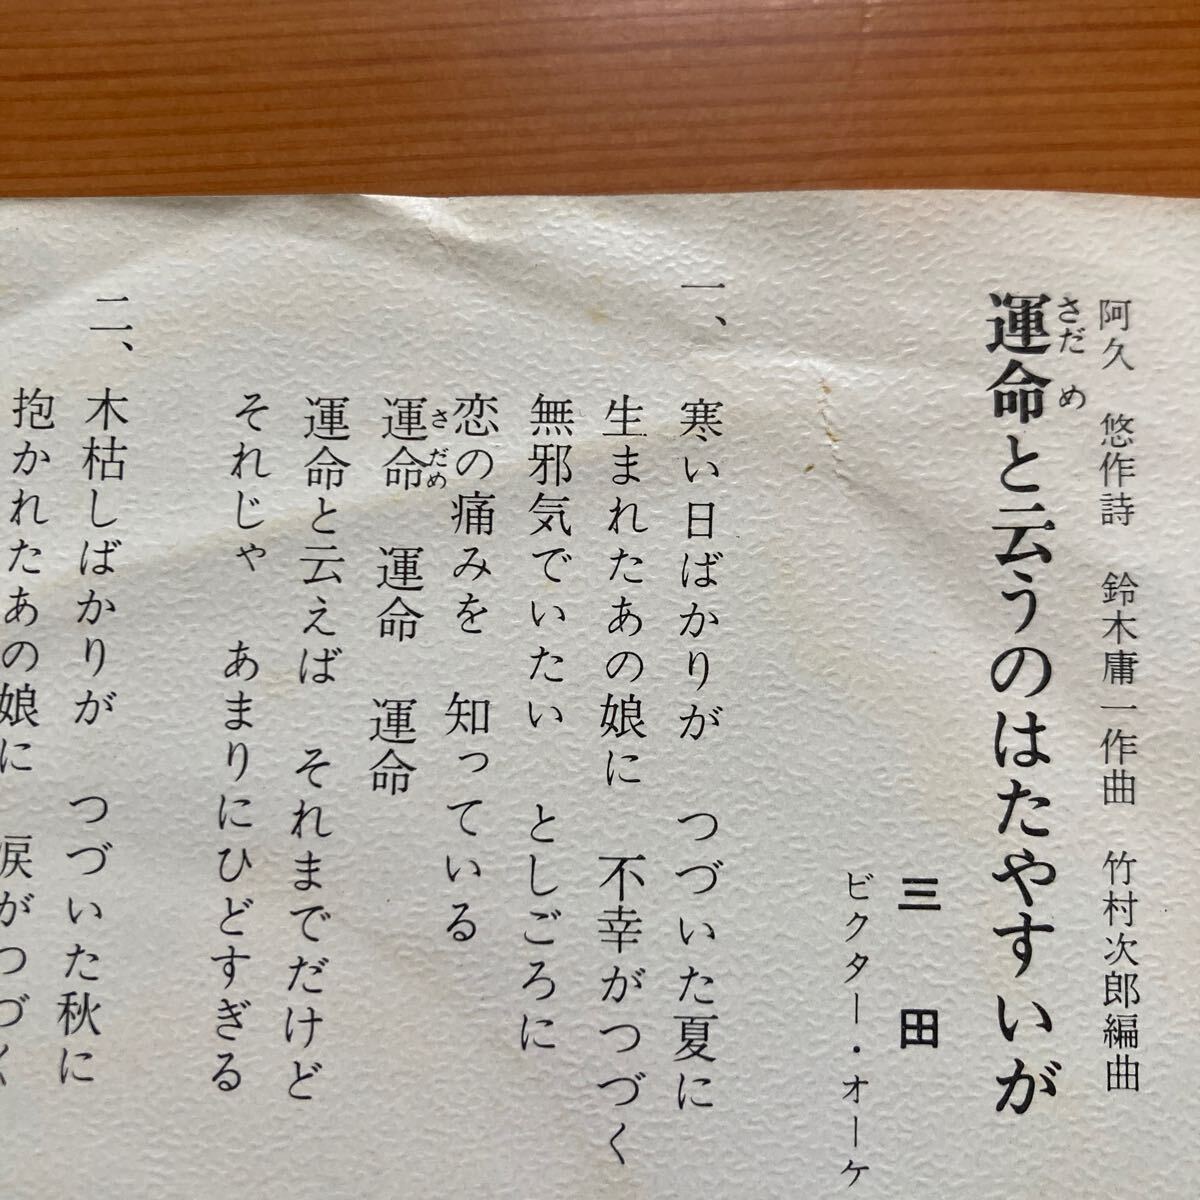 阿久 悠作詩 鈴木庸一作曲 竹村次郎編曲
運命と云うのはたやすいが
さだめ
三田
ビクター・オーケ
一、
寒い日ばかりが つづいた夏に
生まれたあの娘に 不幸がつづく
無邪気でいたい としごろに
恋の痛みを 知っている
運命 運命 運命
さだめ
運命と云えば それまでだけど
それじゃ あまりにひどすぎる
二、
木枯しばかりが つづいた秋に
抱かれたあの娘に 涙がつづく